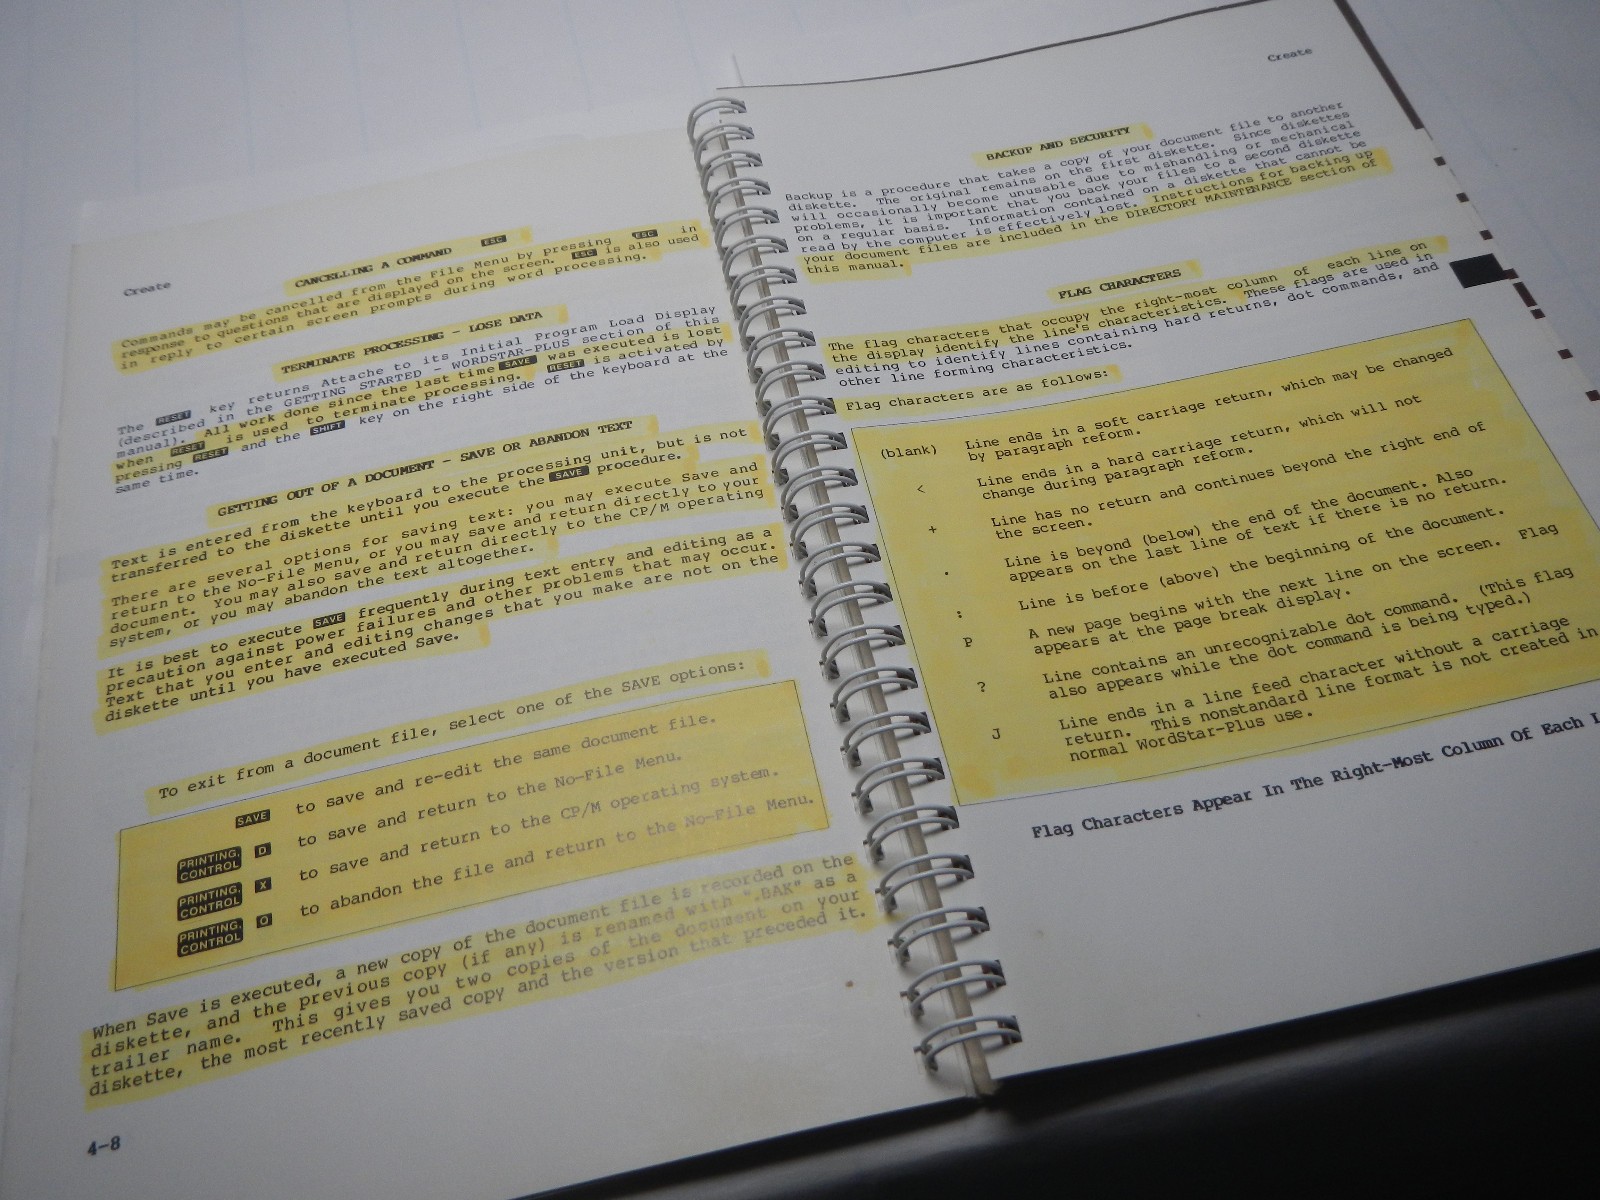 Create
CANCELLING A COMMAND ESC
Commands may be cancelled from the File Menu by pressing ESC in
response to questions that are displayed on the screen. ESC is also used
in reply to certain screen prompts during word processing.
TERMINATE PROCESSING - LOSE DATA
The RESET key returns Attache to its Initial Program Load Display
(described in the GETTING STARTED - WORDSTAR-PLUS section of this
manual). All work done since the last time SAVE was executed is lost
when RESET is used to terminate processing. RESET is activated by
pressing RESET and the SHIFT key on the right side of the keyboard at the
same time.
GETTING OUT OF A DOCUMENT - SAVE OR ABANDON TEXT
Text is entered from the keyboard to the processing unit, but is not
transferred to the diskette until you execute the SAVE procedure.
There are several options for saving text: you may execute Save and
return to the No-File Menu, or you may save and return directly to your
document. You may also save and return directly to the CP/M operating
system, or you may abandon the text altogether.
It is best to execute SAVE frequently during text entry and editing as a
precaution against power failures and other problems that may occur.
Text that you enter and editing changes that you make are not on the
diskette until you have executed Save.
To exit from a document file, select one of the SAVE options:
SAVE to save and re-edit the same document file.
PRINTING CONTROL D to save and return to the No-File Menu.
PRINTING CONTROL X to save and return to the CP/M operating system.
PRINTING CONTROL Q to abandon the file and return to the No-File Menu.
When Save is executed, a new copy of the document file is recorded on the
diskette, and the previous copy (if any) is renamed with ".BAK" as a
trailer name. This gives you two copies of the document on your
diskette, the most recently saved copy and the version that preceded it.
4-8
Create
BACKUP AND SECURITY
Backup is a procedure that takes a copy of your document file to another
diskette. The original remains on the first diskette. Since diskettes
will occasionally become unusable due to mishandling or mechanical
problems, it is important that you back your files to a second diskette
on a regular basis. Information contained on a diskette that cannot be
read by the computer is effectively lost. Instructions for backing up
your document files are included in the DIRECTORY MAINTENANCE section of
this manual.
FLAG CHARACTERS
The flag characters that occupy the right-most column of each line on
the display identify the line's characteristics. These flags are used in
editing to identify lines containing hard returns, dot commands, and
other line forming characteristics.
Flag characters are as follows:
(blank) Line ends in a soft carriage return, which may be changed
by paragraph reform.
< Line ends in a hard carriage return, which will not
change during paragraph reform.
+ Line has no return and continues beyond the right end of
the screen.
. Line is beyond (below) the end of the document. Also
appears on the last line of text if there is no return.
: Line is before (above) the beginning of the document.
P A new page begins with the next line on the screen. Flag
appears at the page break display.
? Line contains an unrecognizable dot command. (This flag
also appears while the dot command is being typed.)
J Line ends in a line feed character without a carriage
return. This nonstandard line format is not created in
normal WordStar-Plus use.
Flag Characters Appear In The Right-Most Column Of Each